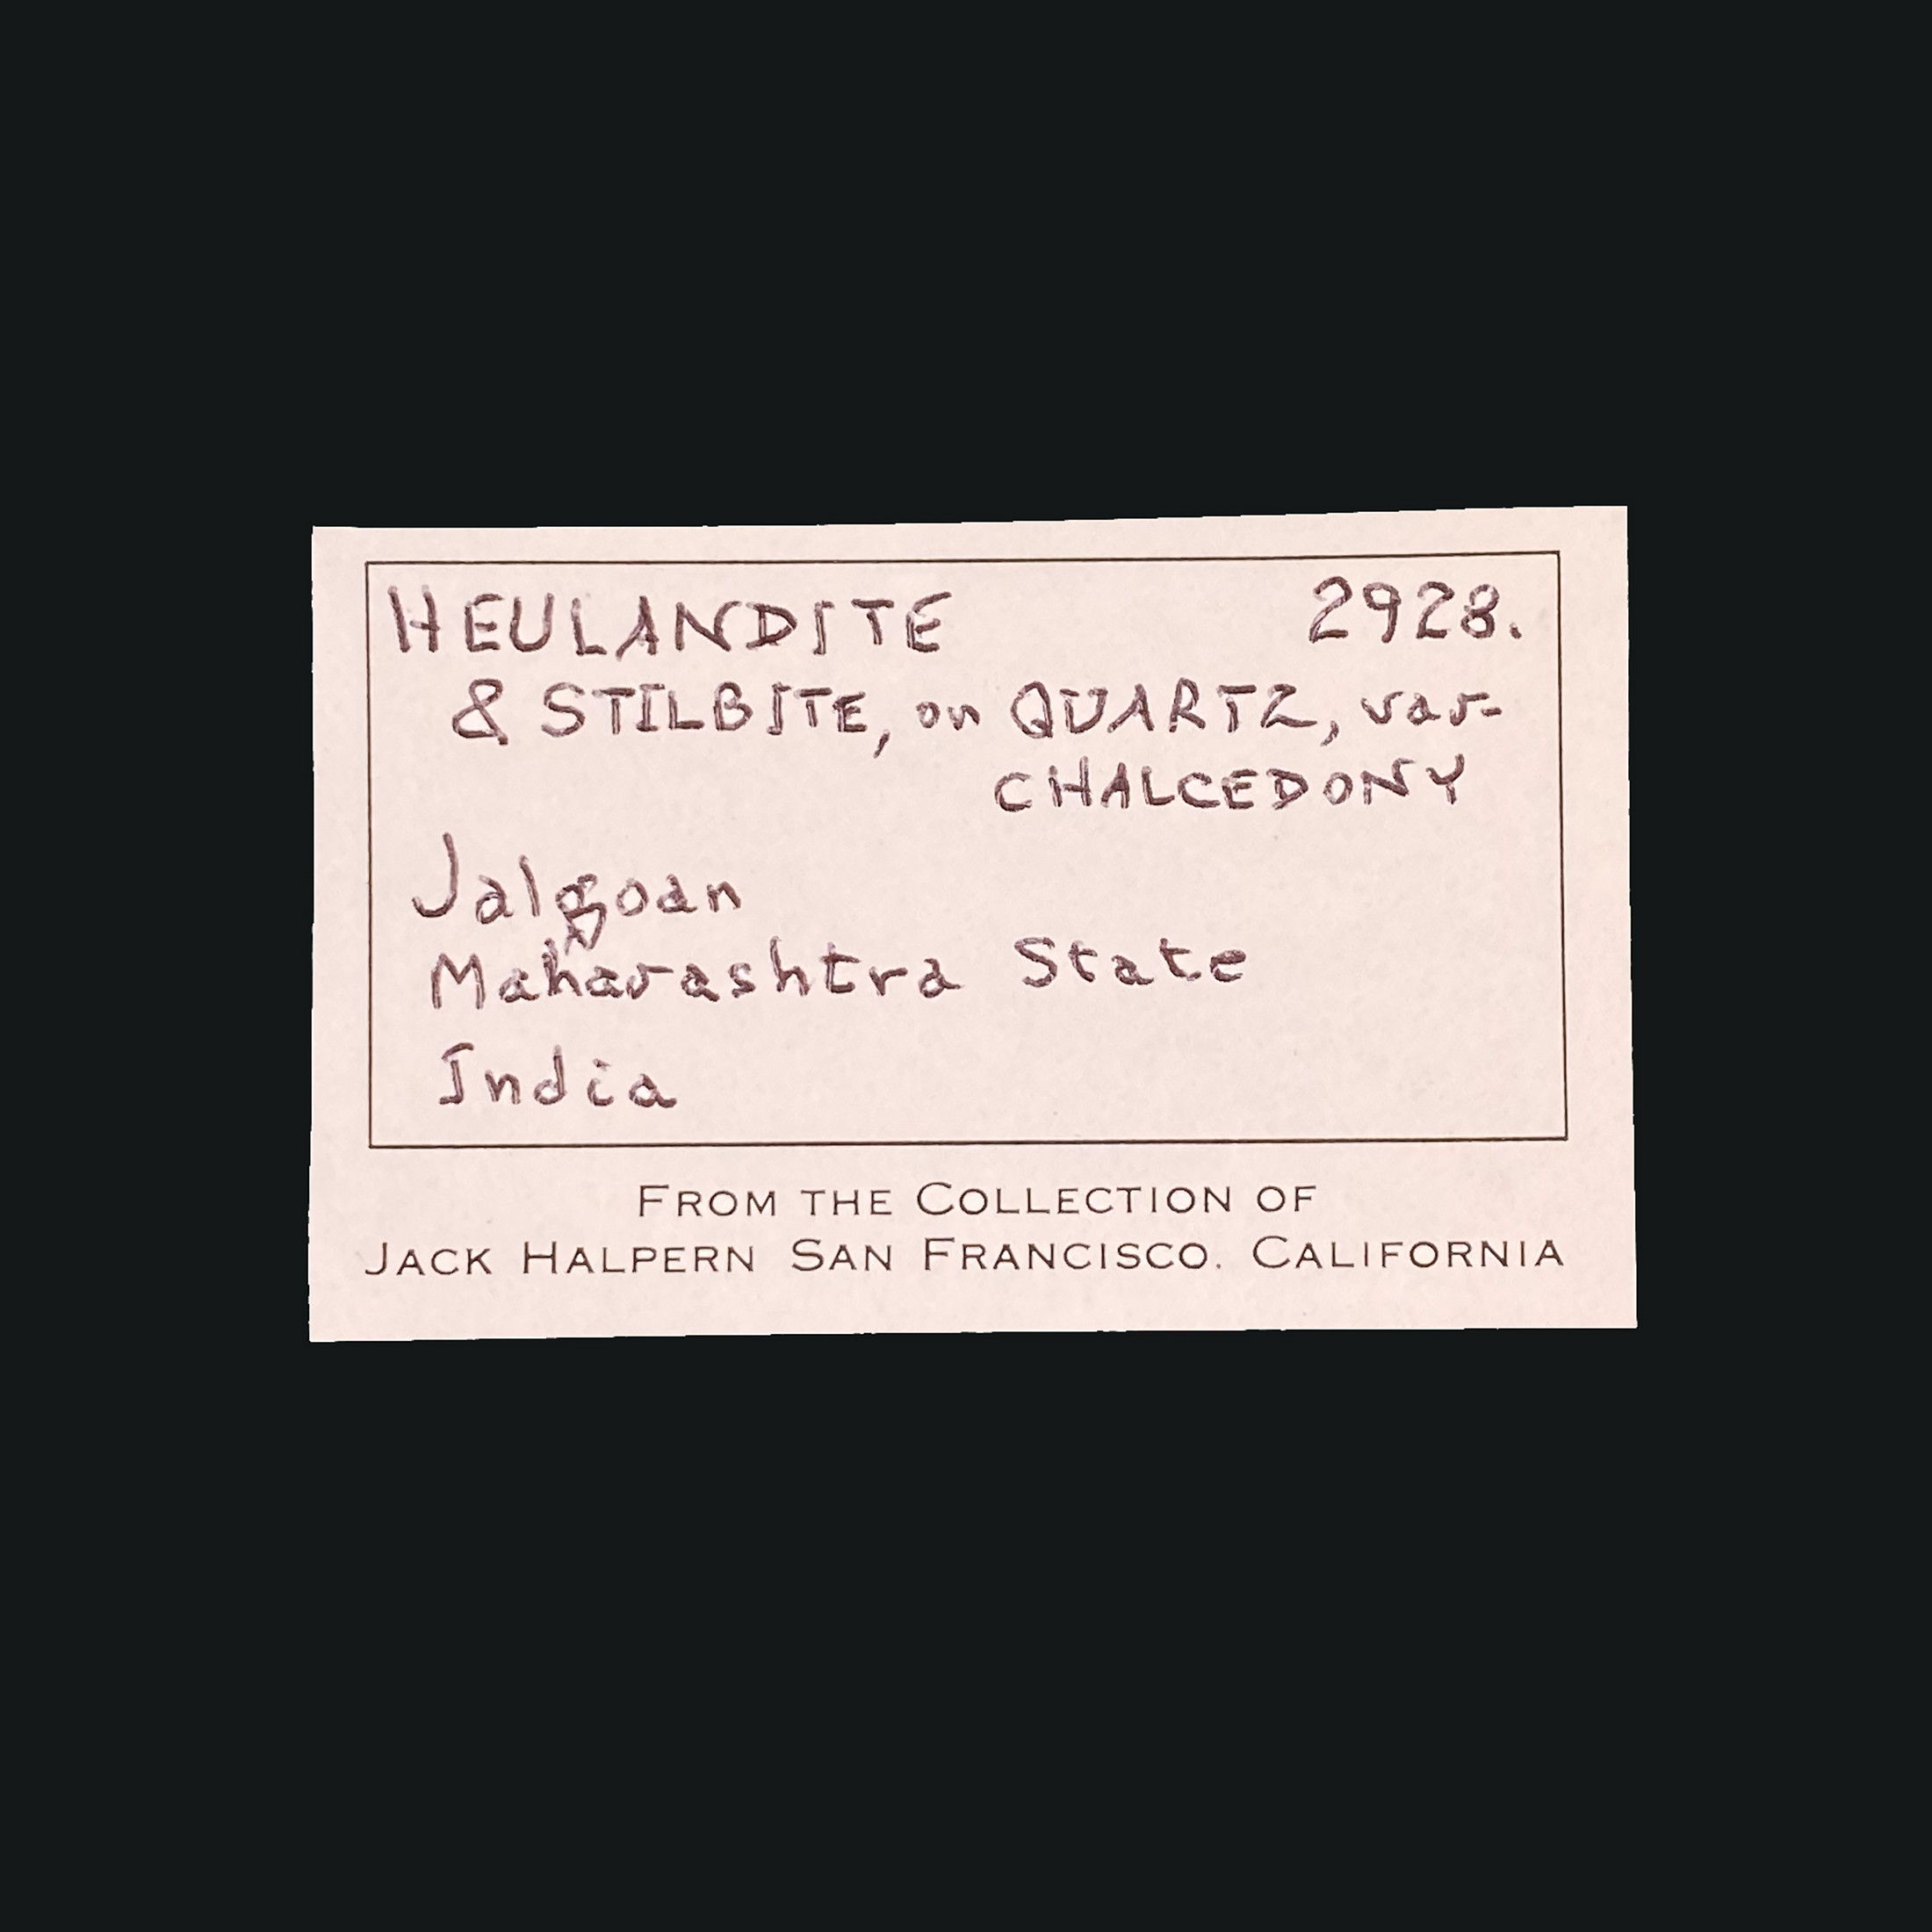 HEULANDITE 2928.
& STILBITE, on QUARTZ, var-
CHALCEDONY
Jalgoan
Maharashtra State
India
FROM THE COLLECTION OF
JACK HALPERN SAN FRANCISCO. CALIFORNIA